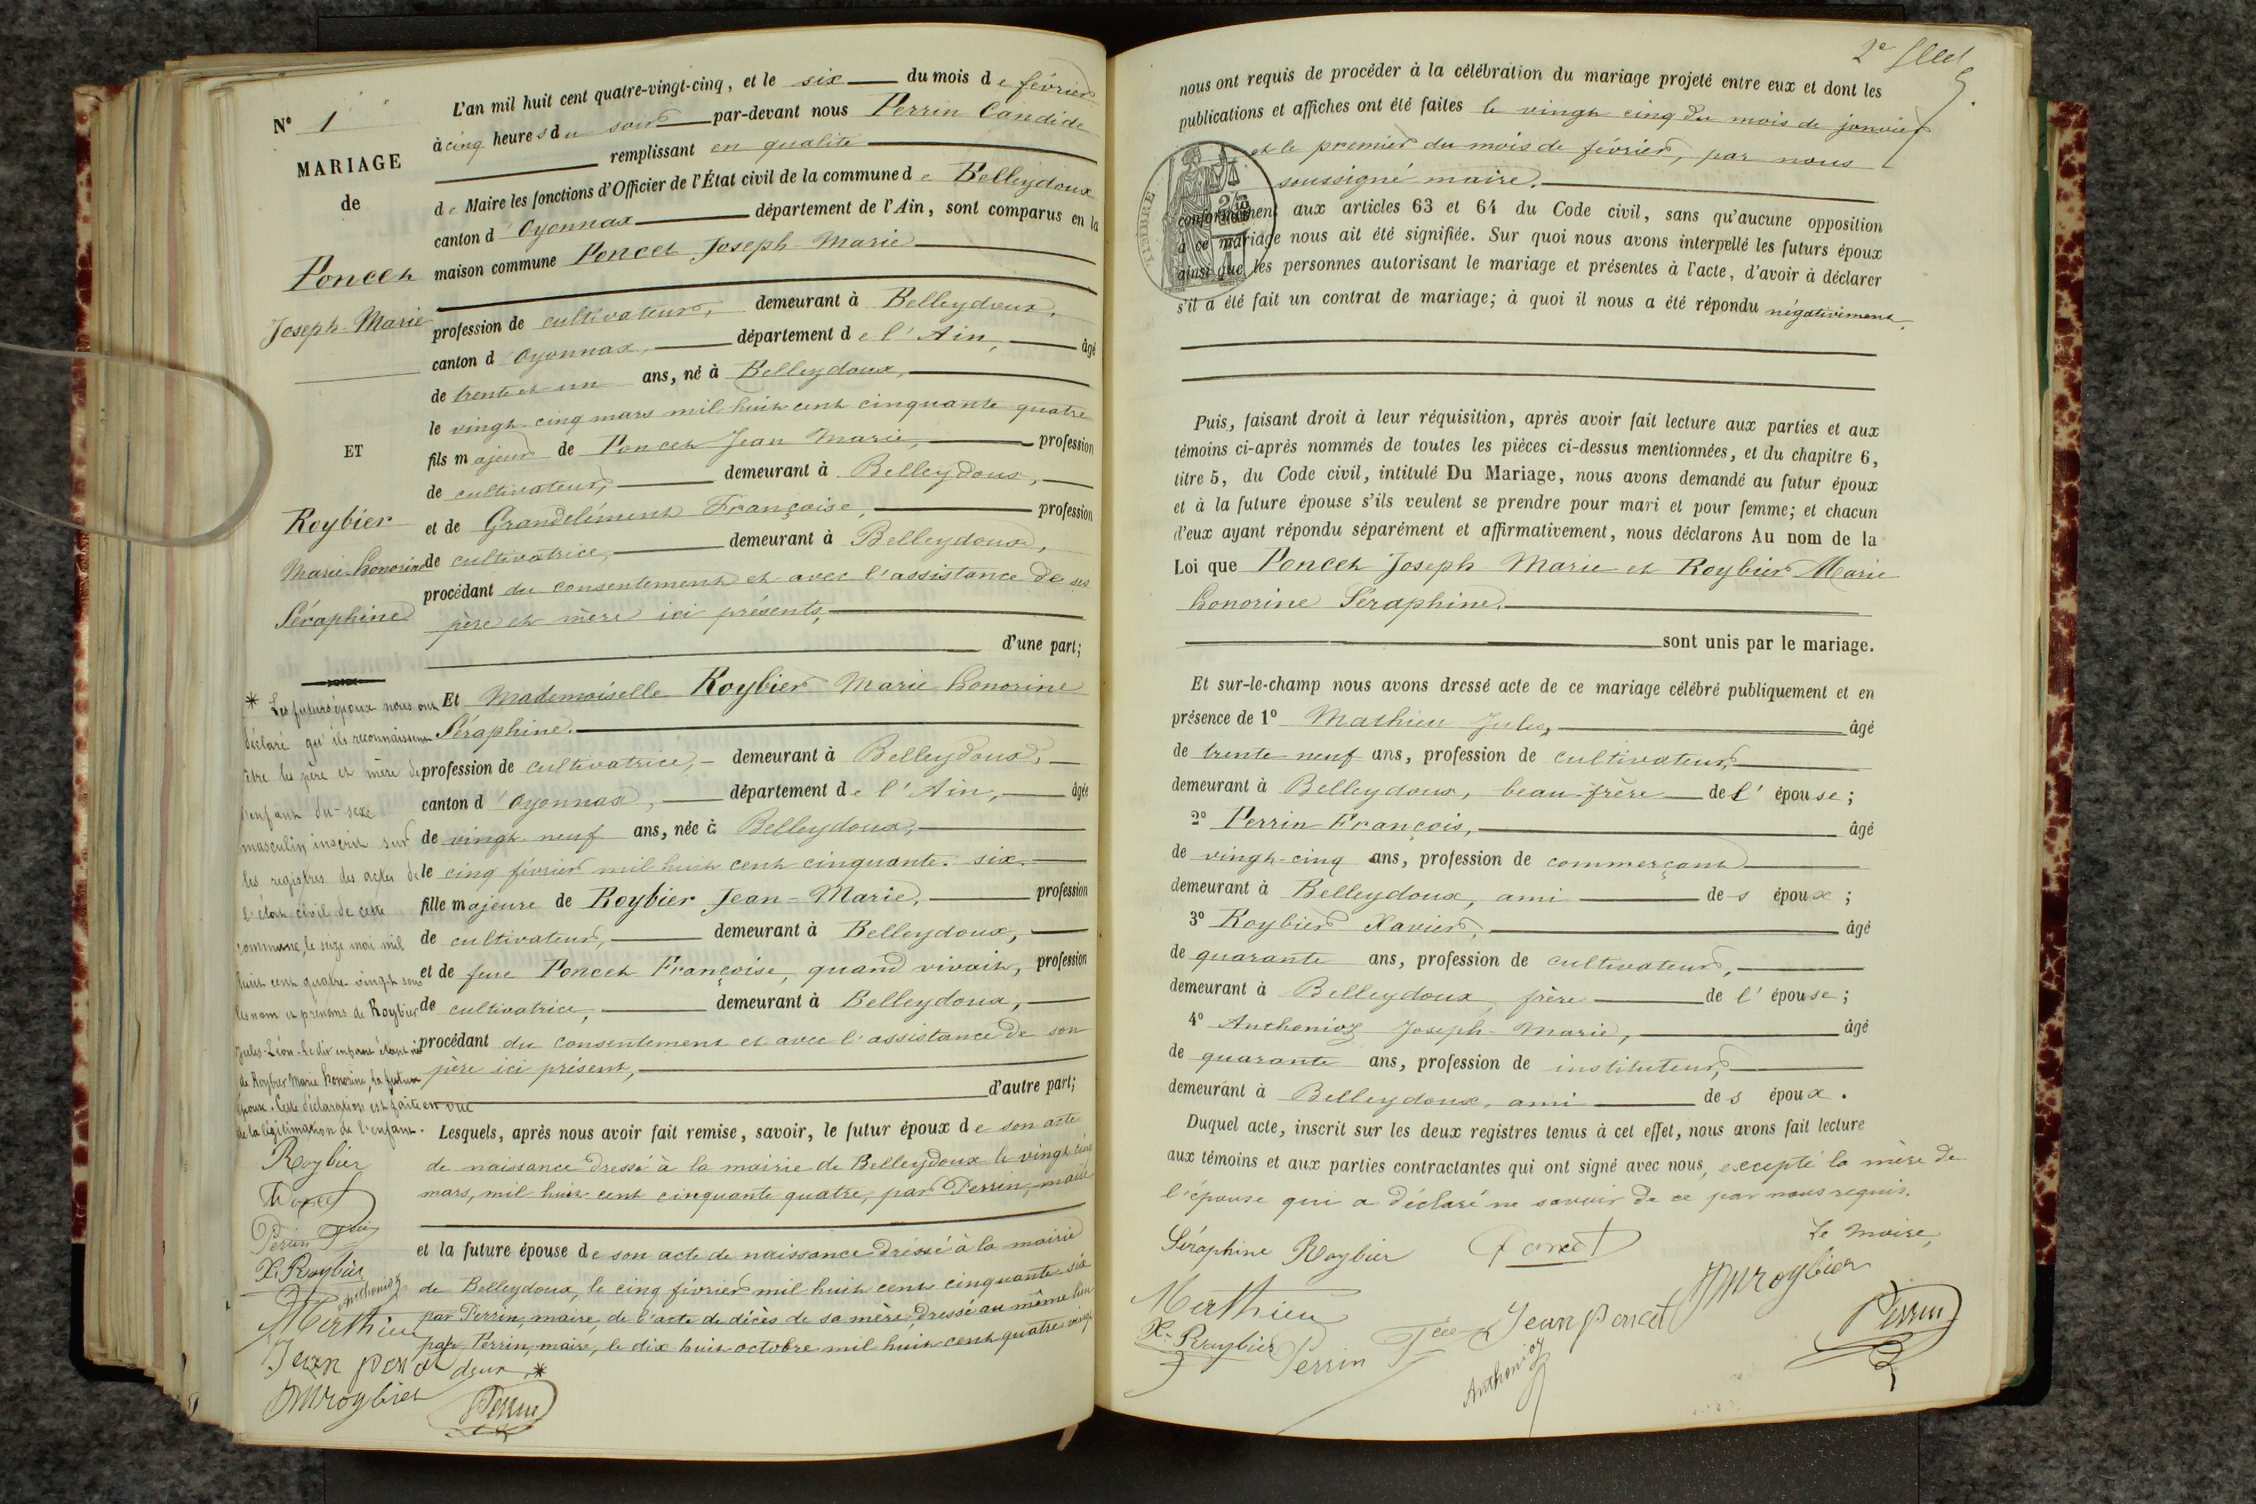 N° 1
MARIAGE
de
Poncet
Joseph-Marie
ET
Roybier
Marie-honorine
Séraphine
* Les futurs époux nous ont
déclaré qu'ils reconnaissent
être les père et mère de
l'enfant du-sexe
masculin inscrit sur
les registres des actes de
l'état civil de cette
commune, le seize mai mil
huit cent quatre-vingt sous
les nom et prénoms de Roybier
Jules-Léon. Le dit enfant étant né
de Roybier Marie honorine, la future
épouse. Cette déclaration est faite en vue
de la légitimation de l'enfant.
Roybier
Poncet
Perrin Fçois
X. Roybier
Anthonioz
Merthieu
Jean poncet
JMroybier
Perrin
L'an mil huit cent quatre-vingt-cinq, et le six du mois de février
à cinq heures du soir par-devant nous Perrin Candide
remplissant en qualité
de Maire les fonctions d'Officier de l'État civil de la commune de Belleydoux
canton d'Oyonnax département de l'Ain, sont comparus en la
maison commune Poncet Joseph-Marie
profession de cultivateur, demeurant à Belleydoux,
canton d'Oyonnax, département de l'Ain, âgé
de trente et un ans, né à Belleydoux,
le vingt-cinq mars mil huit cent cinquante quatre
fils majeur de Poncet Jean Marie, profession
de cultivateur, demeurant à Belleydoux,
et de Grandclément Françoise, profession
de cultivatrice, demeurant à Belleydoux,
procédant du consentement et avec l'assistance de ses
père et mère ici présents,
d'une part;
Et Mademoiselle Roybier Marie-honorine
Séraphine.
profession de cultivatrice, demeurant à Belleydoux,
canton d'Oyonnax, département de l'Ain, âgée
de vingt-neuf ans, née à Belleydoux,
le cinq février mil huit cent cinquante-six.
fille majeure de Roybier Jean-Marie, profession
de cultivateur, demeurant à Belleydoux,
et de feue Poncet Françoise, quand vivait, profession
de cultivatrice, demeurant à Belleydoux,
procédant du consentement et avec l'assistance de son
père ici présent,
d'autre part;
Lesquels, après nous avoir fait remise, savoir, le futur époux de son acte
de naissance dressé à la mairie de Belleydoux le vingt cinq
mars, mil huit cent cinquante quatre, par Perrin, maire
et la future épouse de son acte de naissance dressé à la mairie
de Belleydoux, le cinq février mil huit cent cinquante-six
par Perrin, maire, de l'acte de décès de sa mère, dressé au même lieu
par Perrin, maire, le dix huit octobre mil huit cent quatre vingt
deux. *
2e fllet
5.
nous ont requis de procéder à la célébration du mariage projeté entre eux et dont les
publications et affiches ont été faites le vingt cinq du mois de janvier
et le premier du mois de février, par nous
soussigné maire.
TIMBRE
conformément aux articles 63 et 64 du Code civil, sans qu'aucune opposition
à ce mariage nous ait été signifiée. Sur quoi nous avons interpellé les futurs époux
ainsi que les personnes autorisant le mariage et présentes à l'acte, d'avoir à déclarer
s'il a été fait un contrat de mariage; à quoi il nous a été répondu négativement.
Puis, faisant droit à leur réquisition, après avoir fait lecture aux parties et aux
témoins ci-après nommés de toutes les pièces ci-dessus mentionnées, et du chapitre 6,
titre 5, du Code civil, intitulé Du Mariage, nous avons demandé au futur époux
et à la future épouse s'ils veulent se prendre pour mari et pour femme; et chacun
d'eux ayant répondu séparément et affirmativement, nous déclarons Au nom de la
Loi que Poncet Joseph Marie et Roybier Marie
honorine Séraphine.
sont unis par le mariage.
Et sur-le-champ nous avons dressé acte de ce mariage célébré publiquement et en
présence de 1° Mathieu Jules, âgé
de trente-neuf ans, profession de cultivateur,
demeurant à Belleydoux, beau-frère de l'épouse;
2° Perrin François, âgé
de vingt-cinq ans, profession de commerçant
demeurant à Belleydoux, ami des époux;
3° Roybier Xavier, âgé
de quarante ans, profession de cultivateur,
demeurant à Belleydoux, frère de l'épouse;
4° Anthonioz Joseph-Marie, âgé
de quarante ans, profession de instituteur,
demeurant à Belleydoux, ami des époux.
Duquel acte, inscrit sur les deux registres tenus à cet effet, nous avons fait lecture
aux témoins et aux parties contractantes qui ont signé avec nous, excepté la mère de
l'épouse qui a déclaré ne savoir de ce par nous requis.
Le Maire,
Séraphine Roybier
Poncet
JMroybier
Merthieu
X. Roybier
Perrin Fçois
Jean poncet
Anthonioz
Perrin